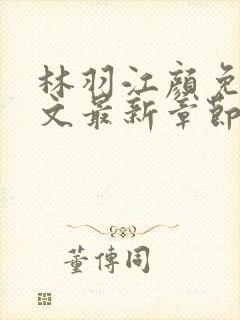 林羽江顏免
文最新章節
董傳同